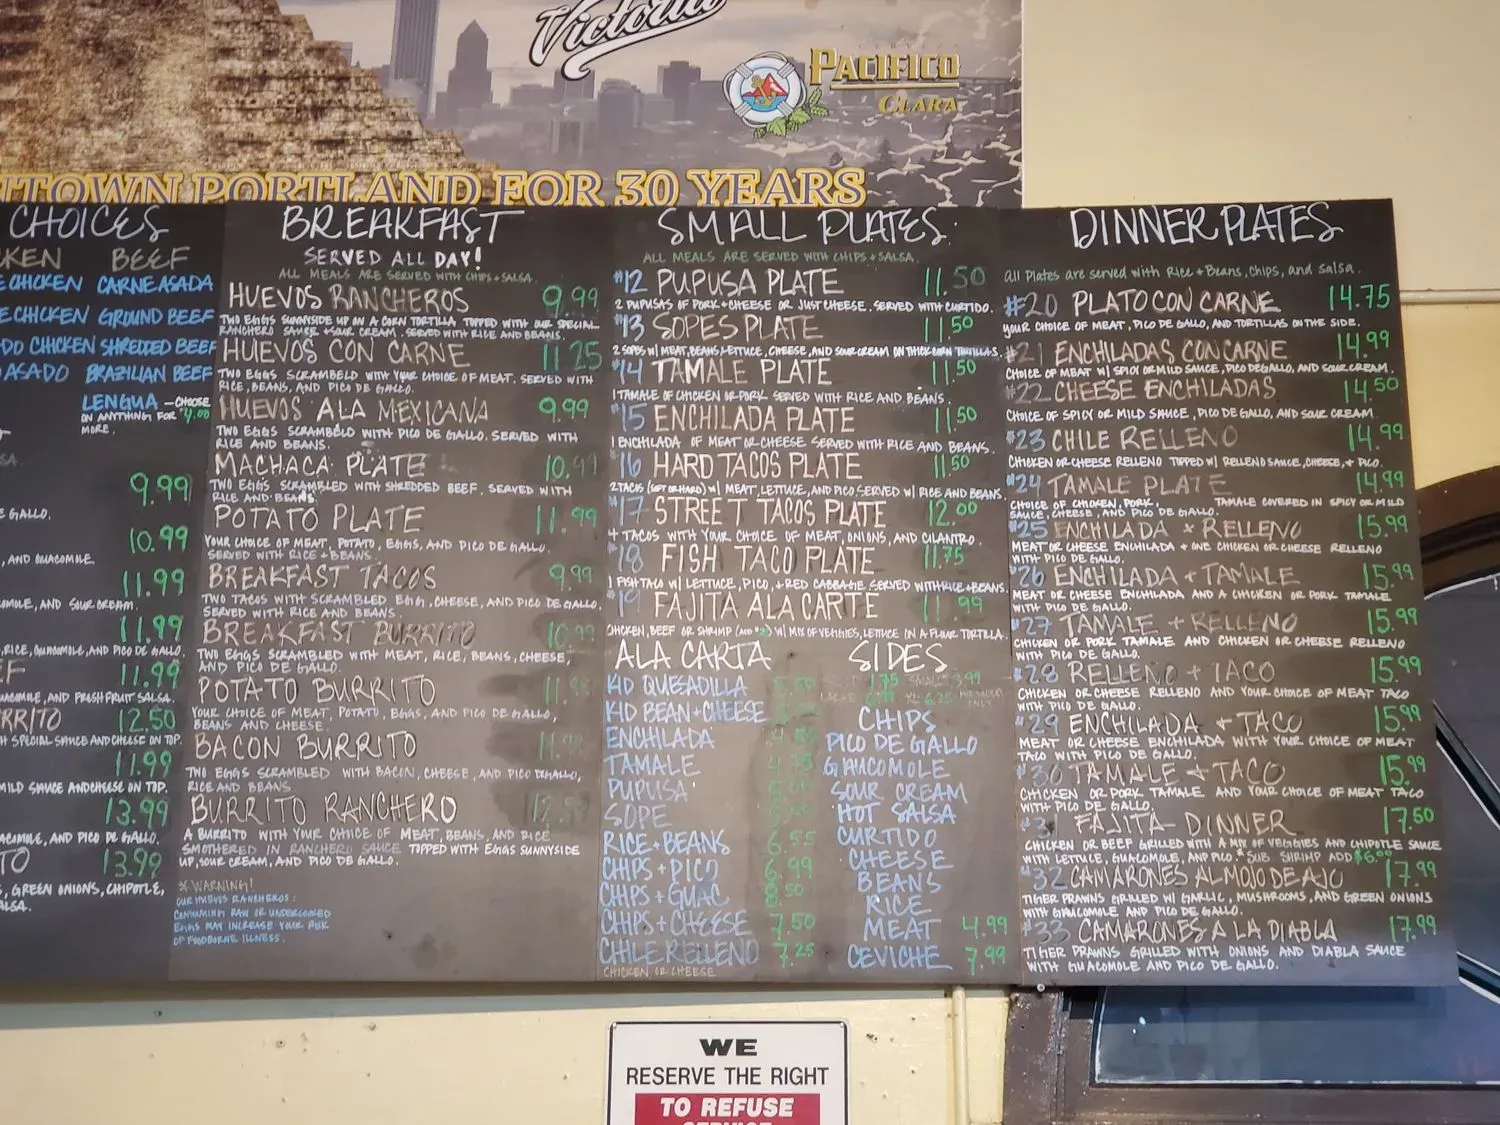 Victoria
CERVEZA
PACIFICO
CLARA
NTOWN PORTLAND FOR 30 YEARS
CHOICES
KEN BEEF
E CHICKEN CARNE ASADA
E CHICKEN GROUND BEEF
DO CHICKEN SHREDDED BEEF
ASADO BRAZILIAN BEEF
LENGUA - CHOOSE
ON ANYTHING FOR $4.00
MORE.
9.99
E GALLO.
10.99
, AND GUACOMOLE.
11.99
OMOLE, AND SOUR CREAM.
11.99
, RICE, GUACOMOLE, AND PICO DE GALLO.
EF 11.99
UACOMOLE, AND FRESH FRUIT SALSA.
URRITO 12.50
H SPECIAL SAUCE AND CHEESE ON TOP.
11.99
MILD SAUCE AND CHEESE ON TOP.
13.99
ACOMOLE, AND PICO DE GALLO.
TO 13.99
S, GREEN ONIONS, CHIPOTLE,
ALSA.
BREAKFAST
SERVED ALL DAY!
ALL MEALS ARE SERVED WITH CHIPS + SALSA.
HUEVOS RANCHEROS 9.99
TWO EGGS SUNNYSIDE UP ON A CORN TORTILLA TOPPED WITH OUR SPECIAL
RANCHERO SAUCE + SOUR CREAM. SERVED WITH RICE AND BEANS.
HUEVOS CON CARNE 11.25
TWO EGGS SCRAMBELD WITH YOUR CHOICE OF MEAT. SERVED WITH
RICE, BEANS, AND PICO DE GALLO.
HUEVOS ALA MEXICANA 9.99
TWO EGGS SCRAMBELD WITH PICO DE GALLO. SERVED WITH
RICE AND BEANS.
MACHACA PLATE 10.99
TWO EGGS SCRAMBLED WITH SHREDDED BEEF. SERVED WITH
RICE AND BEANS.
POTATO PLATE 11.99
YOUR CHOICE OF MEAT, POTATO, EGGS, AND PICO DE GALLO.
SERVED WITH RICE + BEANS.
BREAKFAST TACOS 9.99
TWO TACOS WITH SCRAMBLED EGG, CHEESE, AND PICO DE GALLO.
SERVED WITH RICE AND BEANS.
BREAKFAST BURRITO 10.99
TWO EGGS SCRAMBLED WITH MEAT, RICE, BEANS, CHEESE,
AND PICO DE GALLO.
POTATO BURRITO
YOUR CHOICE OF MEAT, POTATO, EGGS, AND PICO DE GALLO,
BEANS AND CHEESE.
BACON BURRITO
TWO EGGS SCRAMBLED WITH BACON, CHEESE, AND PICO DEGALLO,
RICE AND BEANS
BURRITO RANCHERO
A BURRITO WITH YOUR CHOICE OF MEAT, BEANS, AND RICE
SMOTHERED IN RANCHERO SAUCE TOPPED WITH EGGS SUNNYSIDE
UP, SOUR CREAM, AND PICO DE GALLO.
* WARNING!
OUR HUEVOS RANCHEROS:
CONSUMING RAW OR UNDERCOOKED
EGGS MAY INCREASE YOUR RISK
OF FOODBORNE ILLNESS.
SMALL PLATES:
ALL MEALS ARE SERVED WITH CHIPS + SALSA.
#12 PUPUSA PLATE 11.50
2 PUPUSAS OF PORK + CHEESE OR JUST CHEESE. SERVED WITH CURTIDO.
#13 SOPES PLATE 11.50
2 SOPES W/ MEAT, BEANS, LETTUCE, CHEESE, AND SOUR CREAM ON THICK CORN TORTILLAS.
#14 TAMALE PLATE 11.50
1 TAMALE OF CHICKEN OR PORK SERVED WITH RICE AND BEANS.
#15 ENCHILADA PLATE 11.50
1 ENCHILADA OF MEAT OR CHEESE SERVED WITH RICE AND BEANS.
#16 HARD TACOS PLATE 11.50
2 TACOS (SOFT OR HARD) W/ MEAT, LETTUCE, AND PICO. SERVED W/ RICE AND BEANS.
#17 STREET TACOS PLATE 12.00
4 TACOS WITH YOUR CHOICE OF MEAT, ONIONS, AND CILANTRO.
#18 FISH TACO PLATE 11.75
1 FISH TACO W/ LETTUCE, PICO, + RED CABBAGE. SERVED WITH RICE + BEANS.
#19 FAJITA ALA CARTE 11.99
CHICKEN, BEEF OR SHRIMP (ADD $2) W/ MIX OF VEGGIES, LETTUCE ON A FLOUR TORTILLA.
ALA CARTA
KID QUESADILLA
KID BEAN + CHEESE
ENCHILADA
TAMALE 4.75
PUPUSA
SOPE
RICE + BEANS 6.55
CHIPS + PICO 6.99
CHIPS + GUAC 8.50
CHIPS + CHEESE 7.50
CHILE RELLENO 7.25
CHICKEN OR CHEESE
SIDES
1.75 SMALL 3.99
LARGE XL 6.25 ONLY
CHIPS
PICO DE GALLO
GUACOMOLE
SOUR CREAM
HOT SALSA
CURTIDO
CHEESE
BEANS
RICE
MEAT 4.99
CEVICHE 7.99
DINNER PLATES
All Plates are served with Rice + Beans, Chips, and Salsa.
#20 PLATO CON CARNE 14.75
YOUR CHOICE OF MEAT, PICO DE GALLO, AND TORTILLAS ON THE SIDE.
#21 ENCHILADAS CON CARNE 14.99
CHOICE OF MEAT W/ SPICY OR MILD SAUCE, PICO DEGALLO, AND SOUR CREAM.
#22 CHEESE ENCHILADAS 14.50
CHOICE OF SPICY OR MILD SAUCE, PICO DE GALLO, AND SOUR CREAM
#23 CHILE RELLENO 14.99
CHICKEN OR CHEESE RELLENO TOPPED W/ RELLENO SAUCE, CHEESE, + PICO.
#24 TAMALE PLATE 14.99
CHOICE OF CHICKEN, PORK, TAMALE COVERED IN SPICY OR MILD
SAUCE, CHEESE, AND PICO DE GALLO.
#25 ENCHILADA + RELLENO 15.99
MEAT OR CHEESE ENCHILADA + ONE CHICKEN OR CHEESE RELLENO
WITH PICO DE GALLO.
#26 ENCHILADA + TAMALE 15.99
MEAT OR CHEESE ENCHILADA AND A CHICKEN OR PORK TAMALE
WITH PICO DE GALLO.
#27 TAMALE + RELLENO 15.99
CHICKEN OR PORK TAMALE AND CHICKEN OR CHEESE RELLENO
WITH PICO DE GALLO.
#28 RELLENO + TACO 15.99
CHICKEN OR CHEESE RELLENO AND YOUR CHOICE OF MEAT TACO
WITH PICO DE GALLO.
#29 ENCHILADA + TACO 15.99
MEAT OR CHEESE ENCHILADA WITH YOUR CHOICE OF MEAT
TACO WITH PICO DE GALLO.
#30 TAMALE + TACO 15.99
CHICKEN OR PORK TAMALE AND YOUR CHOICE OF MEAT TACO
WITH PICO DE GALLO.
#31 FAJITA DINNER 17.50
CHICKEN OR BEEF GRILLED WITH A MIX OF VEGGIES AND CHIPOTLE SAUCE
WITH LETTUCE, GUACOMOLE, AND PICO. * SUB SHRIMP ADD $6.00
#32 CAMARONES AL MOJO DE AJO 17.99
TIGER PRAWNS GRILLED W/ GARLIC, MUSHROOMS, AND GREEN ONIONS
WITH GUACOMOLE AND PICO DE GALLO.
#33 CAMARONES A LA DIABLA 17.99
TIGER PRAWNS GRILLED WITH ONIONS AND DIABLA SAUCE
WITH GUACOMOLE AND PICO DE GALLO.
WE
RESERVE THE RIGHT
TO REFUSE
SERVICE